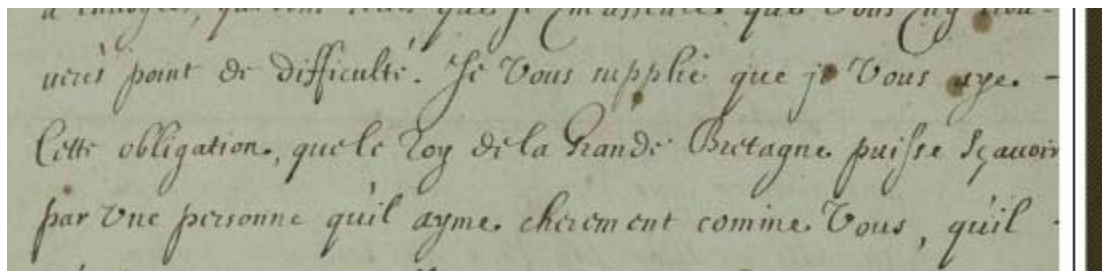 que je m'asseure que Vous n'y trou-
verés point de difficulté. Je Vous supplie que je Vous aye -
Cette obligation, que le Roy de la Grande Bretagne puisse sçavoir
par Vne personne qu'il ayme cherement comme Vous, qu'il -